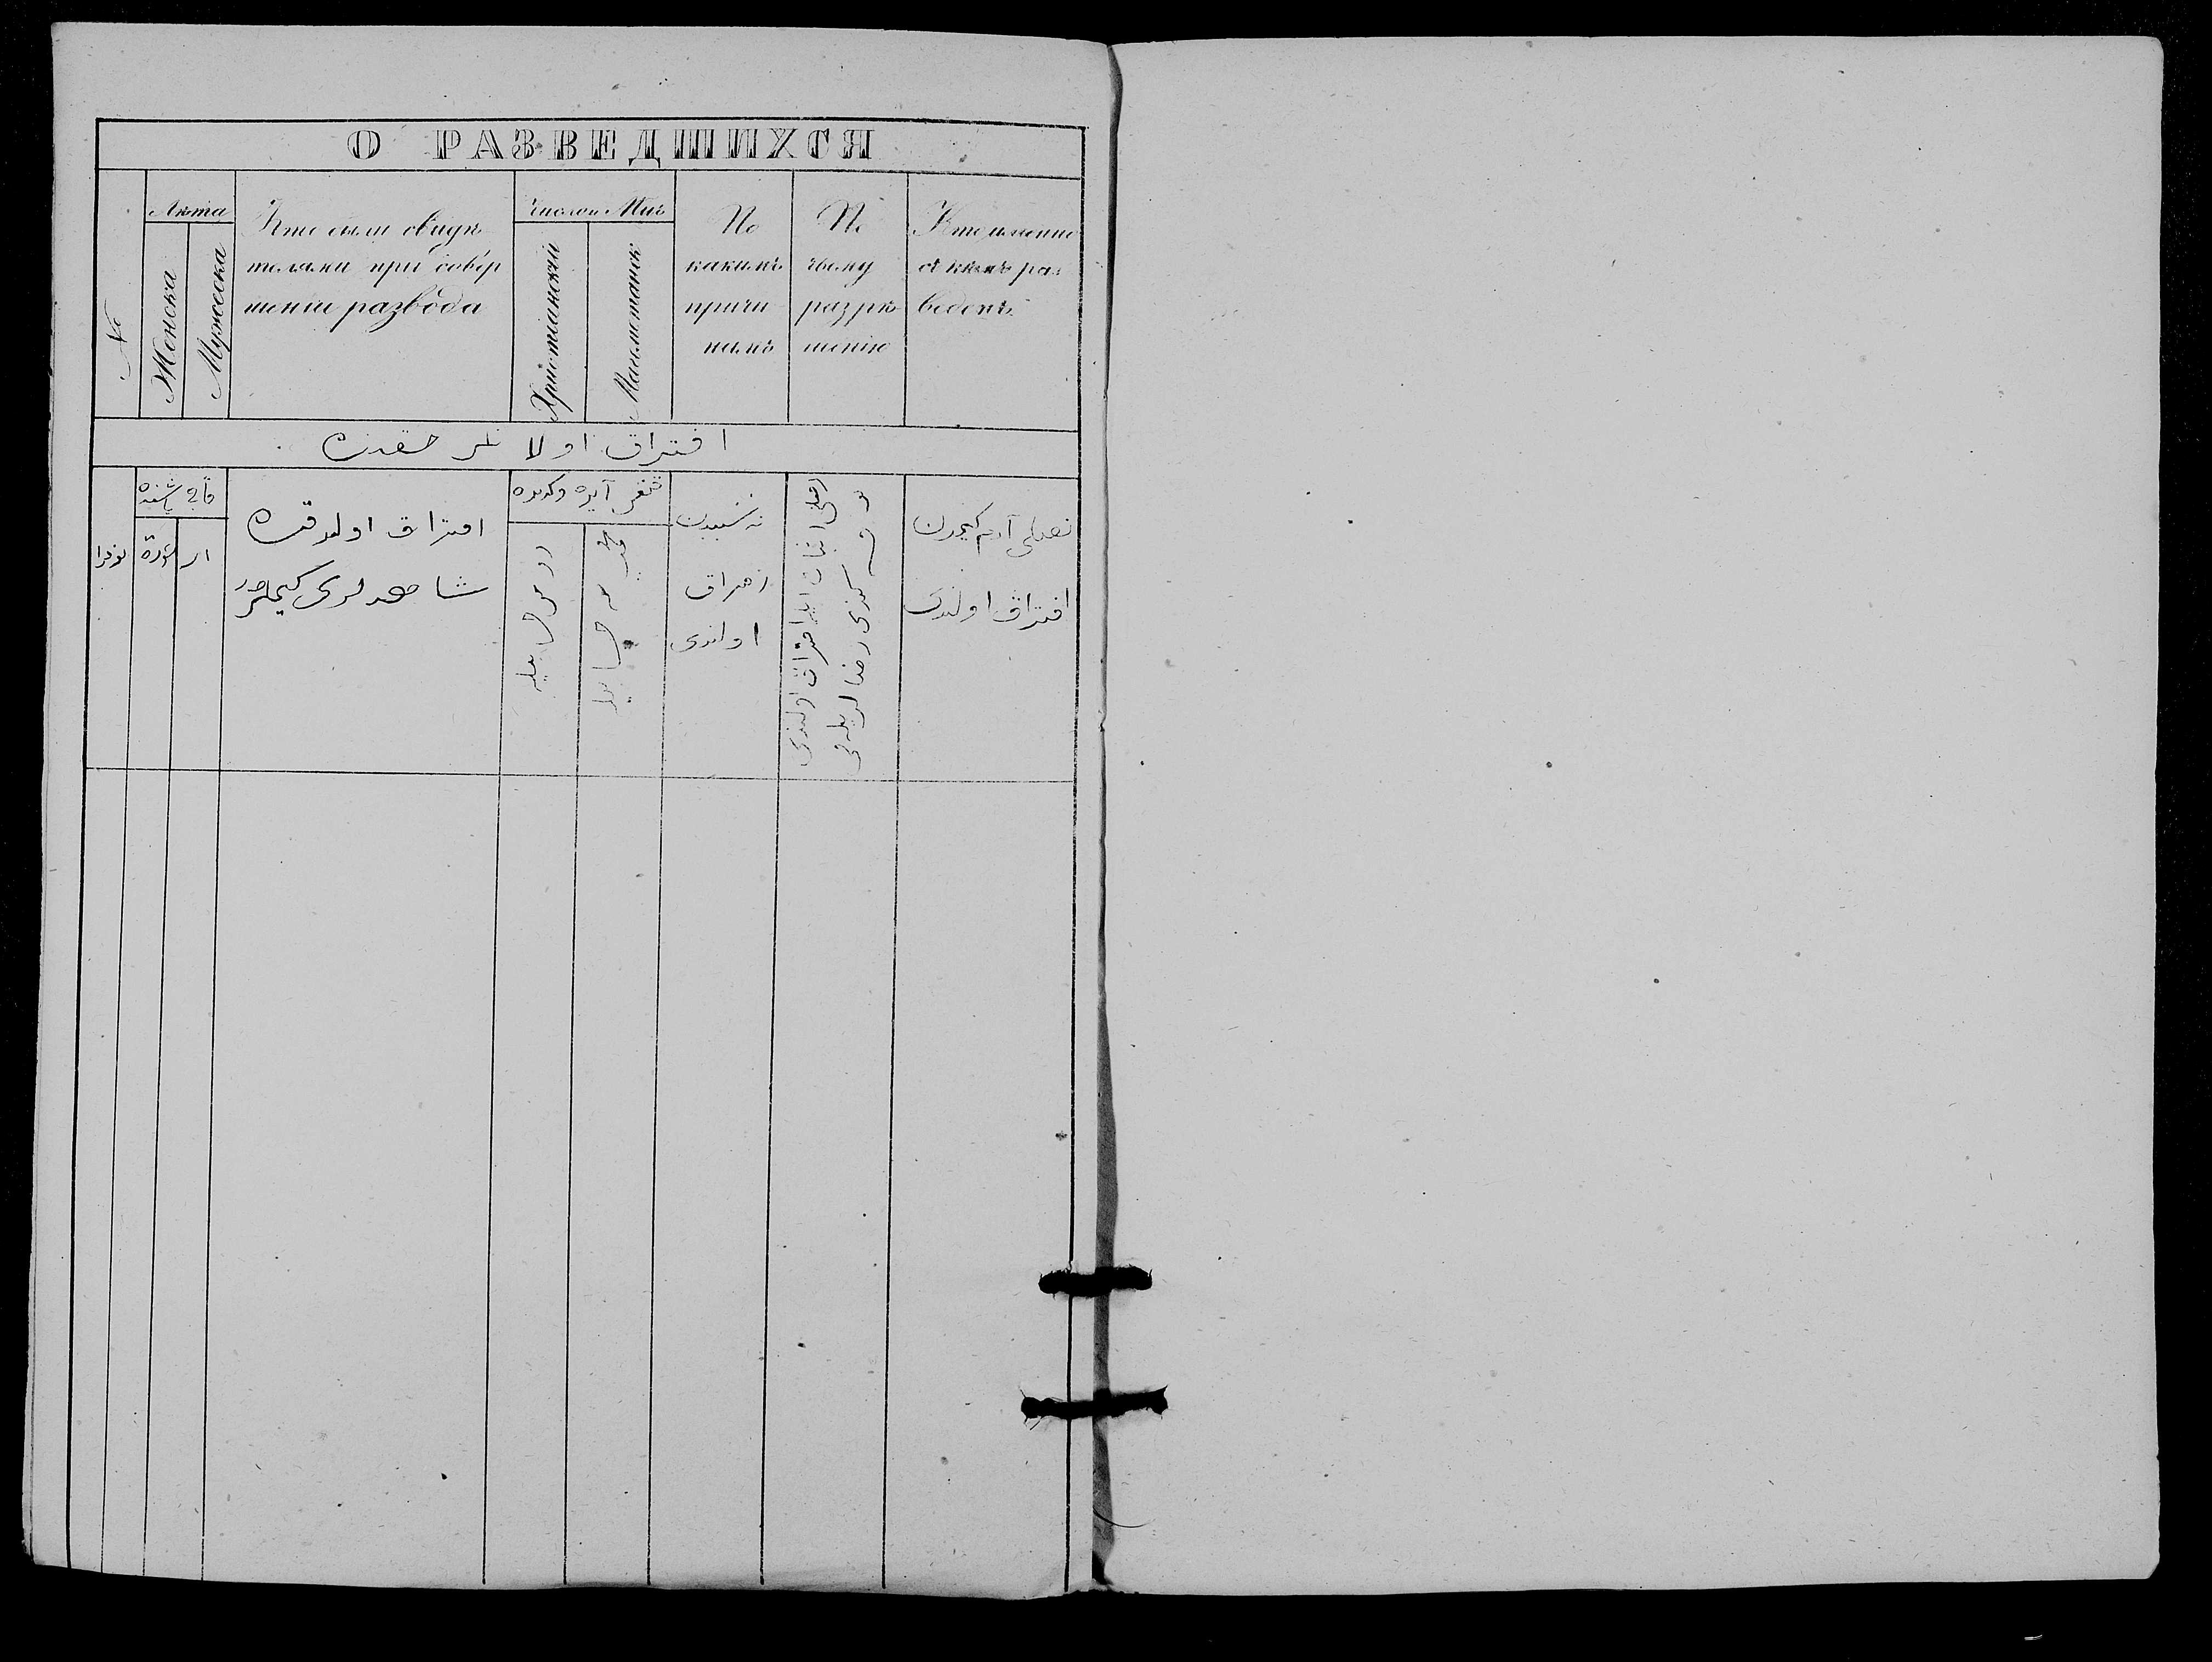 О РАЗВЕДШИХСЯ
№
Лѣта
Женска
Мужеска
Кто были свидѣ
телями при совѣр
шенiи развода
Число и Мць
Христіанскій
Магометанск
По
какимъ
причи
намъ
По
чьему
разрѣ
шенію
Кто именно
съ кѣмъ раз
веденъ
افتراق اولانلر حقنده
افتراق اولدقده
شاهدلری کیملردر
ار
نه سببدن
افتراق
اولندی
آدم کیمدن
افتراق اولندی